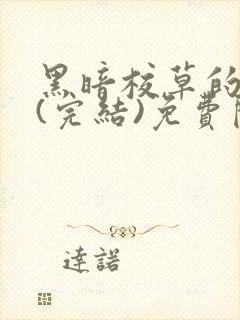 黑暗校草的
(完結)免費
達諾